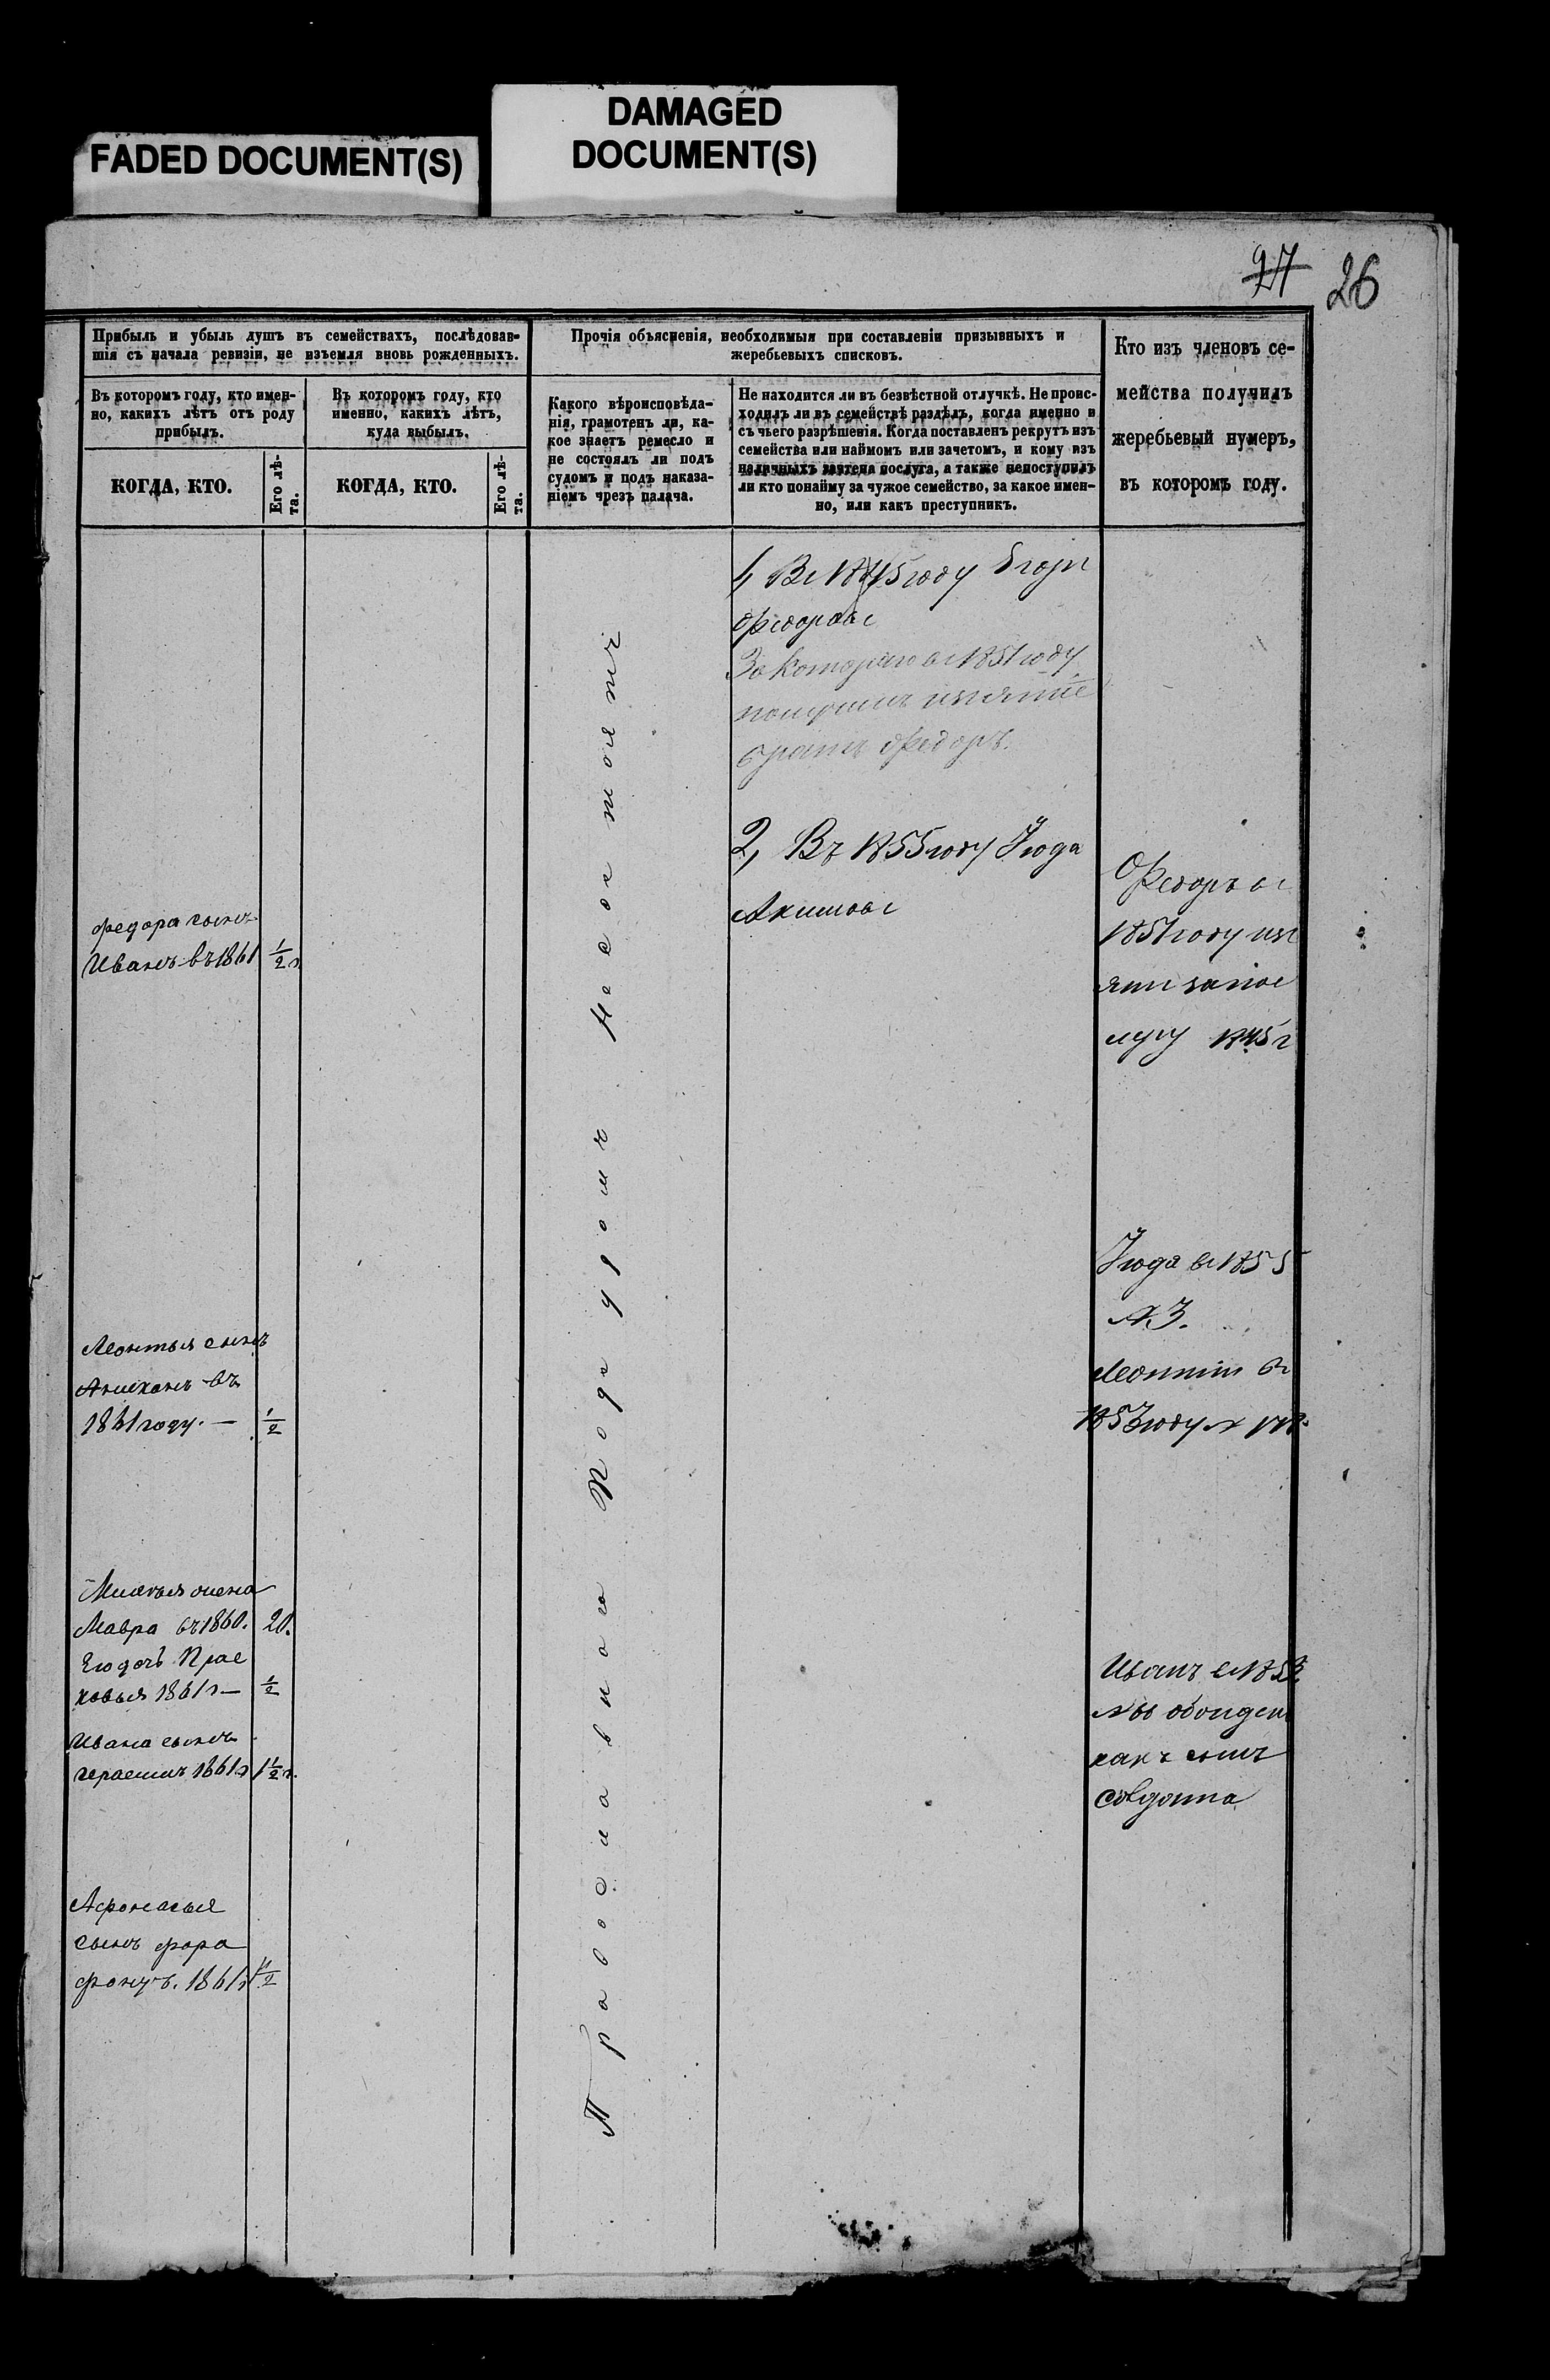 FADED DOCUMENT(S)
DAMAGED
DOCUMENT(S)
27 26
Прибыль и убыль душъ въ семействахъ, послѣдовав-
шія съ начала ревизіи, не изъемля вновь рожденныхъ.
Въ которомъ году, кто имен-
но, какихъ лѣтъ отъ роду
прибылъ.
КОГДА, КТО.
Его лѣ-
та.
Въ которомъ году, кто
именно, какихъ лѣтъ,
куда выбылъ.
КОГДА, КТО.
Его лѣ-
та.
Прочія объясненія, необходимыя при составленіи призывныхъ и
жеребьевыхъ списковъ.
Какого вѣроисповѣда-
нія, грамотенъ ли, ка-
кое знаетъ ремесло и
не состоялъ ли подъ
судомъ и подъ наказа-
ніемъ чрезъ палача.
Не находится ли въ безвѣстной отлучкѣ. Не проис-
ходилъ ли въ семействѣ раздѣлъ, когда именно и
съ чьего разрѣшенія. Когда поставленъ рекрутъ изъ
семейства или наймомъ или зачетомъ, и кому изъ
наличныхъ зачтена послуга, а также непоступилъ
ли кто понайму за чужое семейство, за какое имен-
но, или какъ преступникъ.
Кто изъ членовъ се-
мейства получилъ
жеребьевый нумеръ,
въ которомъ году.
федора сынъ
Иванъ въ 1861 1/2 г
Леонтья сынъ
въ
1861 году. — 1/2
жена
Мавра въ 1860. 20.
Его дочь Прас
ковья 1861 г — 1/2
Ивана сынъ
1861 г 1 1/2 г.
Афонасья
сынъ фера
фонтъ. 1861 г 1/2
Православнаго Подъ судомъ Несостоятъ
1, Въ 1845 году Егоръ
Федоровъ
За котораго въ 1851 году
получилъ изъятіе
братъ Федоръ.
2, Въ 1855 году Июда
Акимовъ
Федоръ въ
1851 году изъ
ятъ запос
лугу 1845 г
Июда въ 1855
№ 3.
Леонтій въ
1853 году №
Иванъ въ 1853
обойденъ
какъ сынъ
Солдата